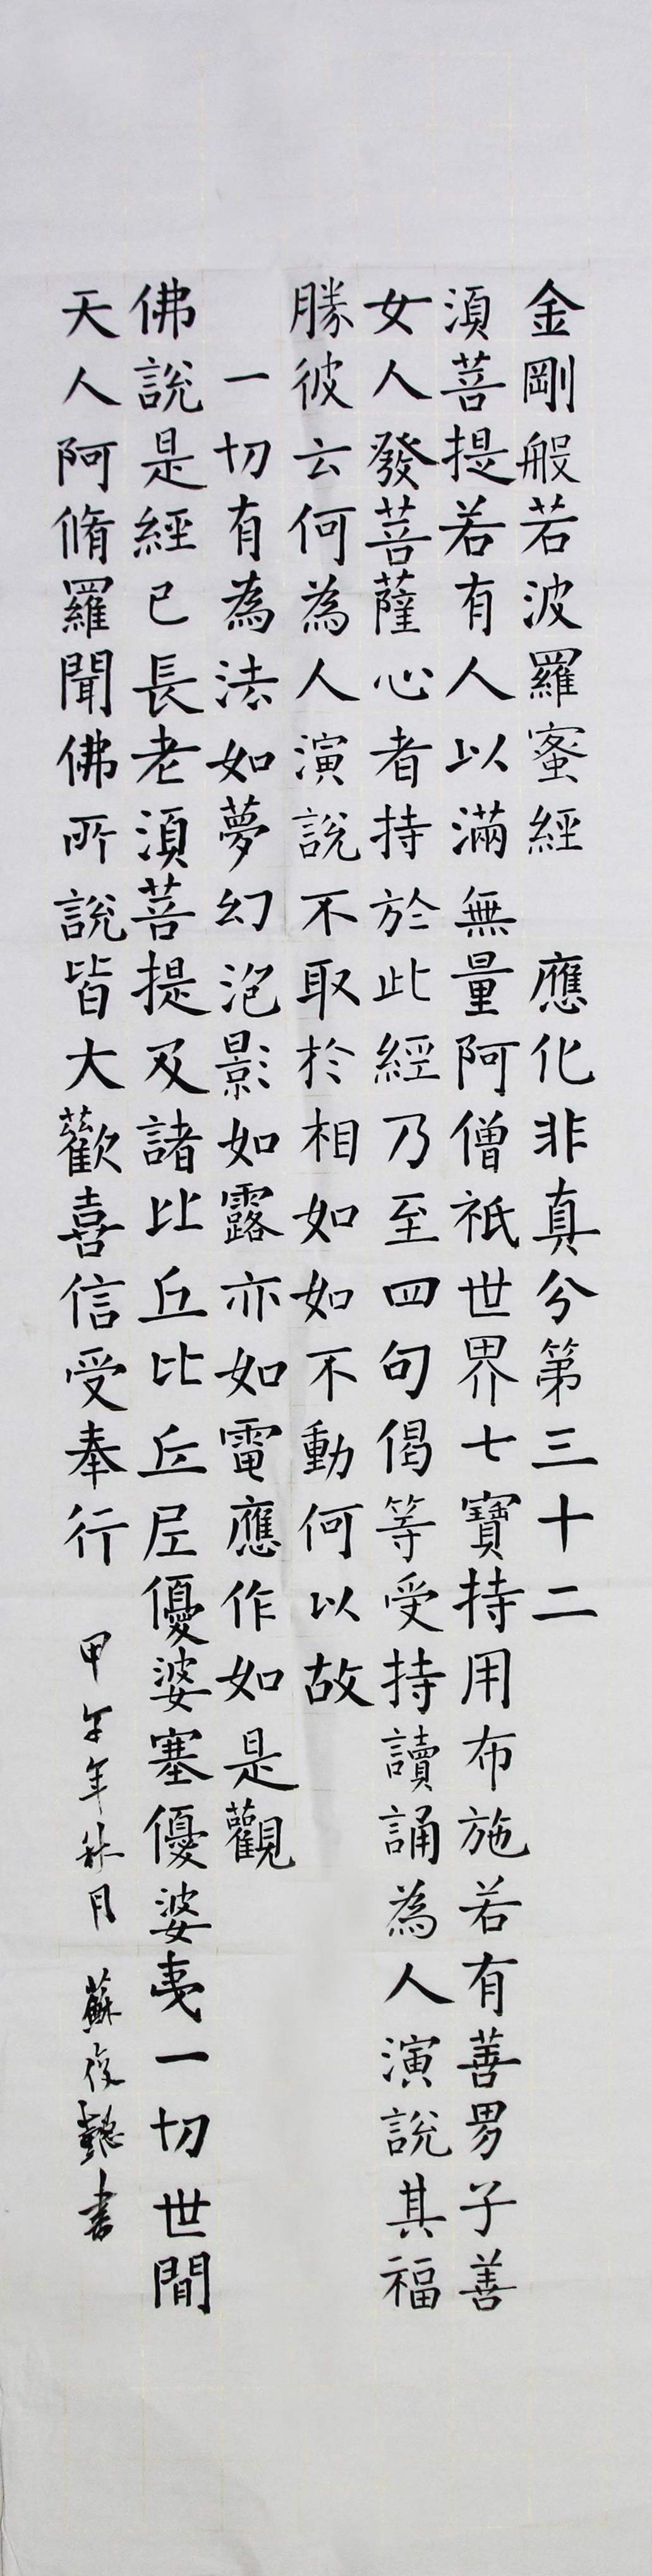 金剛般若波羅蜜經 應化非真分第三十二
須菩提若有人以滿無量阿僧祇世界七寶持用布施若有善男子善
女人發菩薩心者持於此經乃至四句偈等受持讀誦為人演說其福
勝彼云何為人演說不取於相如如不動何以故
一切有為法如夢幻泡影如露亦如電應作如是觀
佛說是經已長老須菩提及諸比丘比丘尼優婆塞優婆夷一切世間
天人阿脩羅聞佛所說皆大歡喜信受奉行 甲午年秋月 蘇俊懿書